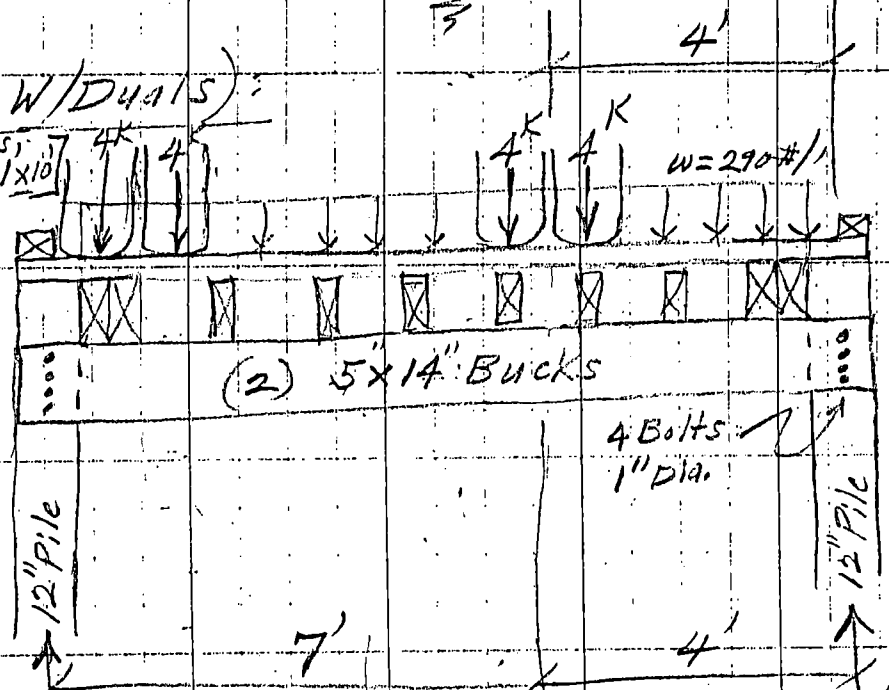 4'
W/Duals):
1x10
4K 4K 4K 4K
w=290#/'
(2) 5"x14" Bucks
4 Bolts
1" Dia.
12" Pile
12" Pile
7' 4'